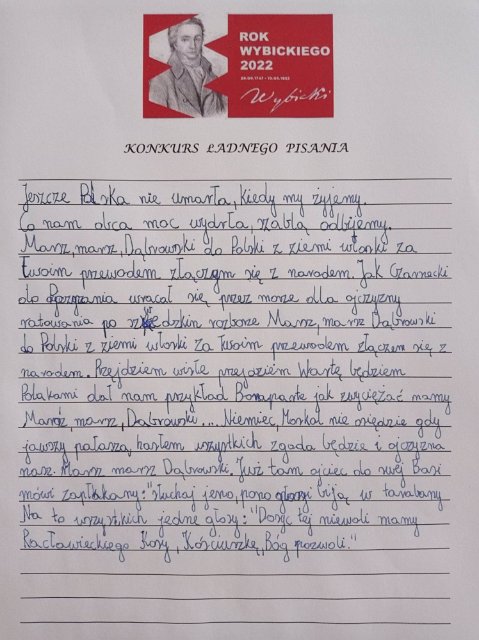 ROK
WYBICKIEGO
2022
Wybicki
KONKURS ŁADNEGO PISANIA
Jeszcze Polska nie umarła, kiedy my żyjemy.
Co nam obca moc wydrła, szablą odbijemy.
Marsz, marsz, Dąbrowski do Polski z ziemi włoski za
Twoim przewodem złączym się z narodem. Jak Czarnecki
do wracał się przez morze dla ojczyzny
ratowania po rozborze Marsz, marsz Dąbrowski
do Polski z ziemi włoski Za twoim przewodem złączem się z
narodem. Przejdziem wisłę przejdziem Wartę będziem
Polakami dał nam przykład Bonaparte jak zwyciężać mamy
Marsz, marsz, Dąbrowski... Niemiec, Moskal nie osiędzie gdy
jąwszy pałasza, hasłem wszystkich zgoda będzie i ojczyzna
nasz. Marsz marsz Dąbrowski. Już tam ojciec do swej Basi
mówi zapłakany: "słuchaj jeno, pono biją w tarabany
Na to wszystkich jedne głosy: "Dosyć tej niewoli mamy
Racławieckiego Kosy, Kościuszkę, Bóg pozwoli."